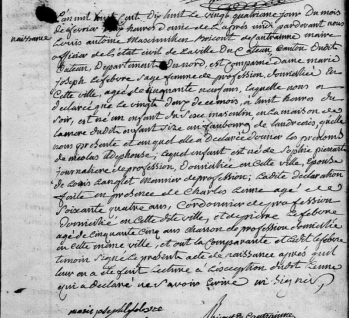 naissance
L'an mil huit cent dix huit le vingt quatrieme jour du mois
de fevrier, heures par devant nous
Louis antoine Maximilien maire
officier de l'état civil de la ville du Cateau Canton dudit
Cateau Departement du nord, est comparue Dame marie
joseph Lefebvre sage femme de profession, domiciliée en
cette ville, agée de cinquante ans, laquelle nous a
declaré que le vingt deux de ce mois, à huit heures du
soir, est né un enfant du sexe masculin en la maison de
la mere dudit enfant size au faubourg de landrecies, qu'elle
nous présente et auquel elle a declaré donner les prénoms
de nicolas ildephonse, lequel enfant est né de Sophie
journaliere de profession, domiciliée en cette ville, épouse
de Louis Langlet de profession; Ladite declaration
faite en présence de Charles agé de
soixante quatre ans, Cordonnier de profession
domicilié en cette dite ville, et de pierre Lefebvre
agé de cinquante cinq ans de profession domicilié
en cette meme ville, et ont la comparante et ledit lefebvre
temoin signé le présent acte de naissance après que
leur en a été fait lecture à l'exception dudit
qui a declaré ne savoir écrire ni signer
marie joseph lefebvre